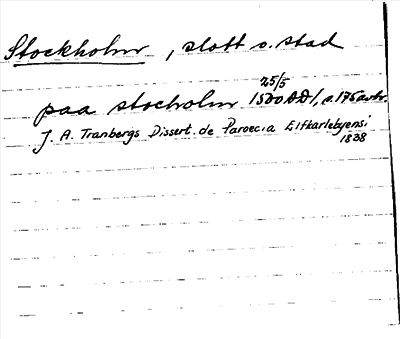 Stockholm, slott o. stad
25/5
paa stocholm 1500 DD1, s. 175 avtr.
J. A. Tranbergs Dissert. de Paroecia Elfkarlebyensi
1838